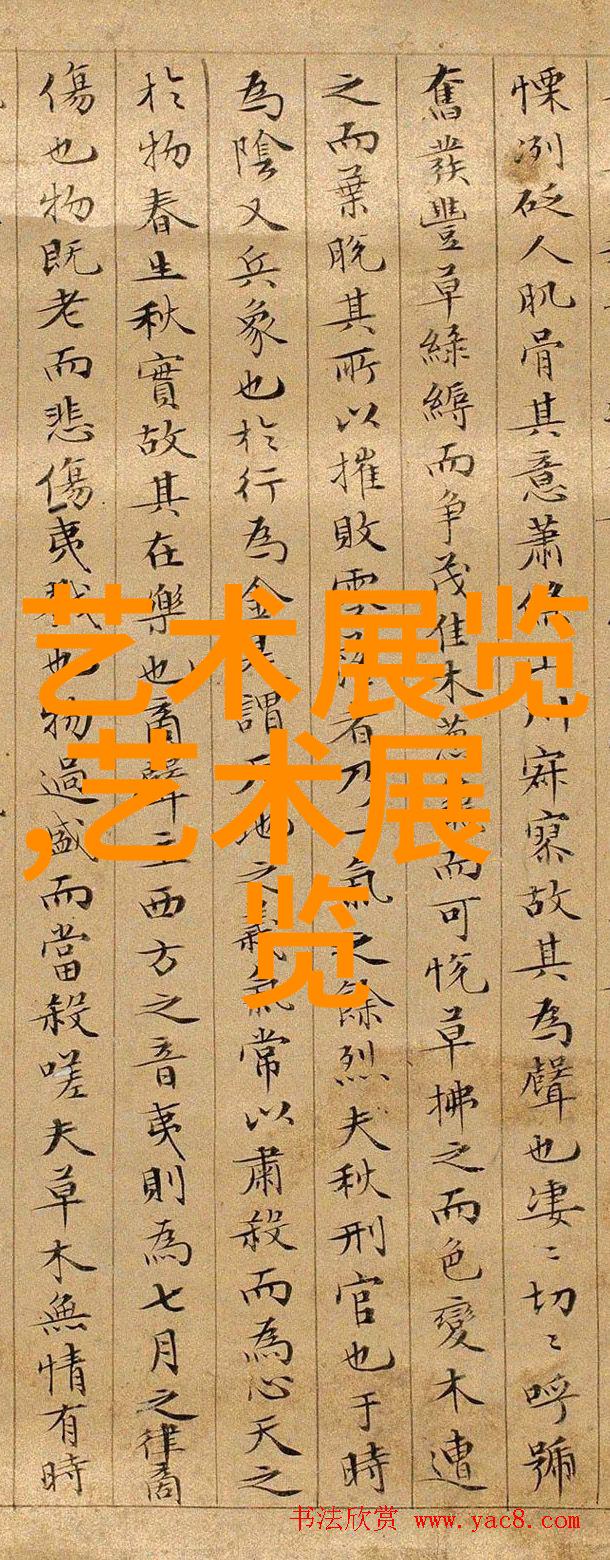 慄冽砭人肌骨其意蕭條山川寂寥故其為聲也凄〻切〻呼號
奮發豐草綠縟而争茂佳木葱蘢而可悅草拂之而色變木遭
之而葉脫其所以摧敗零落者乃一氣之餘烈夫秋刑官也于時
為陰又兵象也於行為金是謂天地之義氣常以肅殺而為心天之
於物春生秋實故其在樂也商聲主西方之音夷則為七月之律商
傷也物既老而悲傷夷戮也物過盛而當殺嗟夫草木無情有時
艺术展览
,艺术展
览
书法欣赏 www.yac8.com